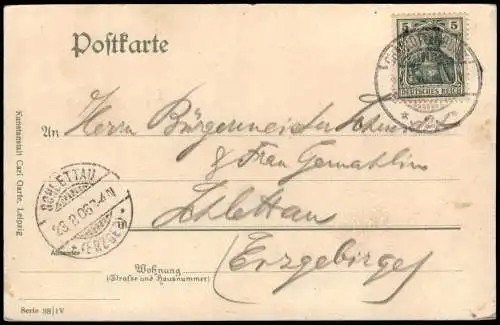 Postkarte
5 5
DEUTSCHES REICH
An Herrn Bürgermeister
& Frau Gemahlin
Schlettau
(Erzgebirge)
SCHLETTAU
23.8.06. 3-4 N
* (ERZGEB.)
Absender
Wohnung
(Straße und Hausnummer)
Kunstanstalt Carl Garte, Leipzig
Serie 38/IV